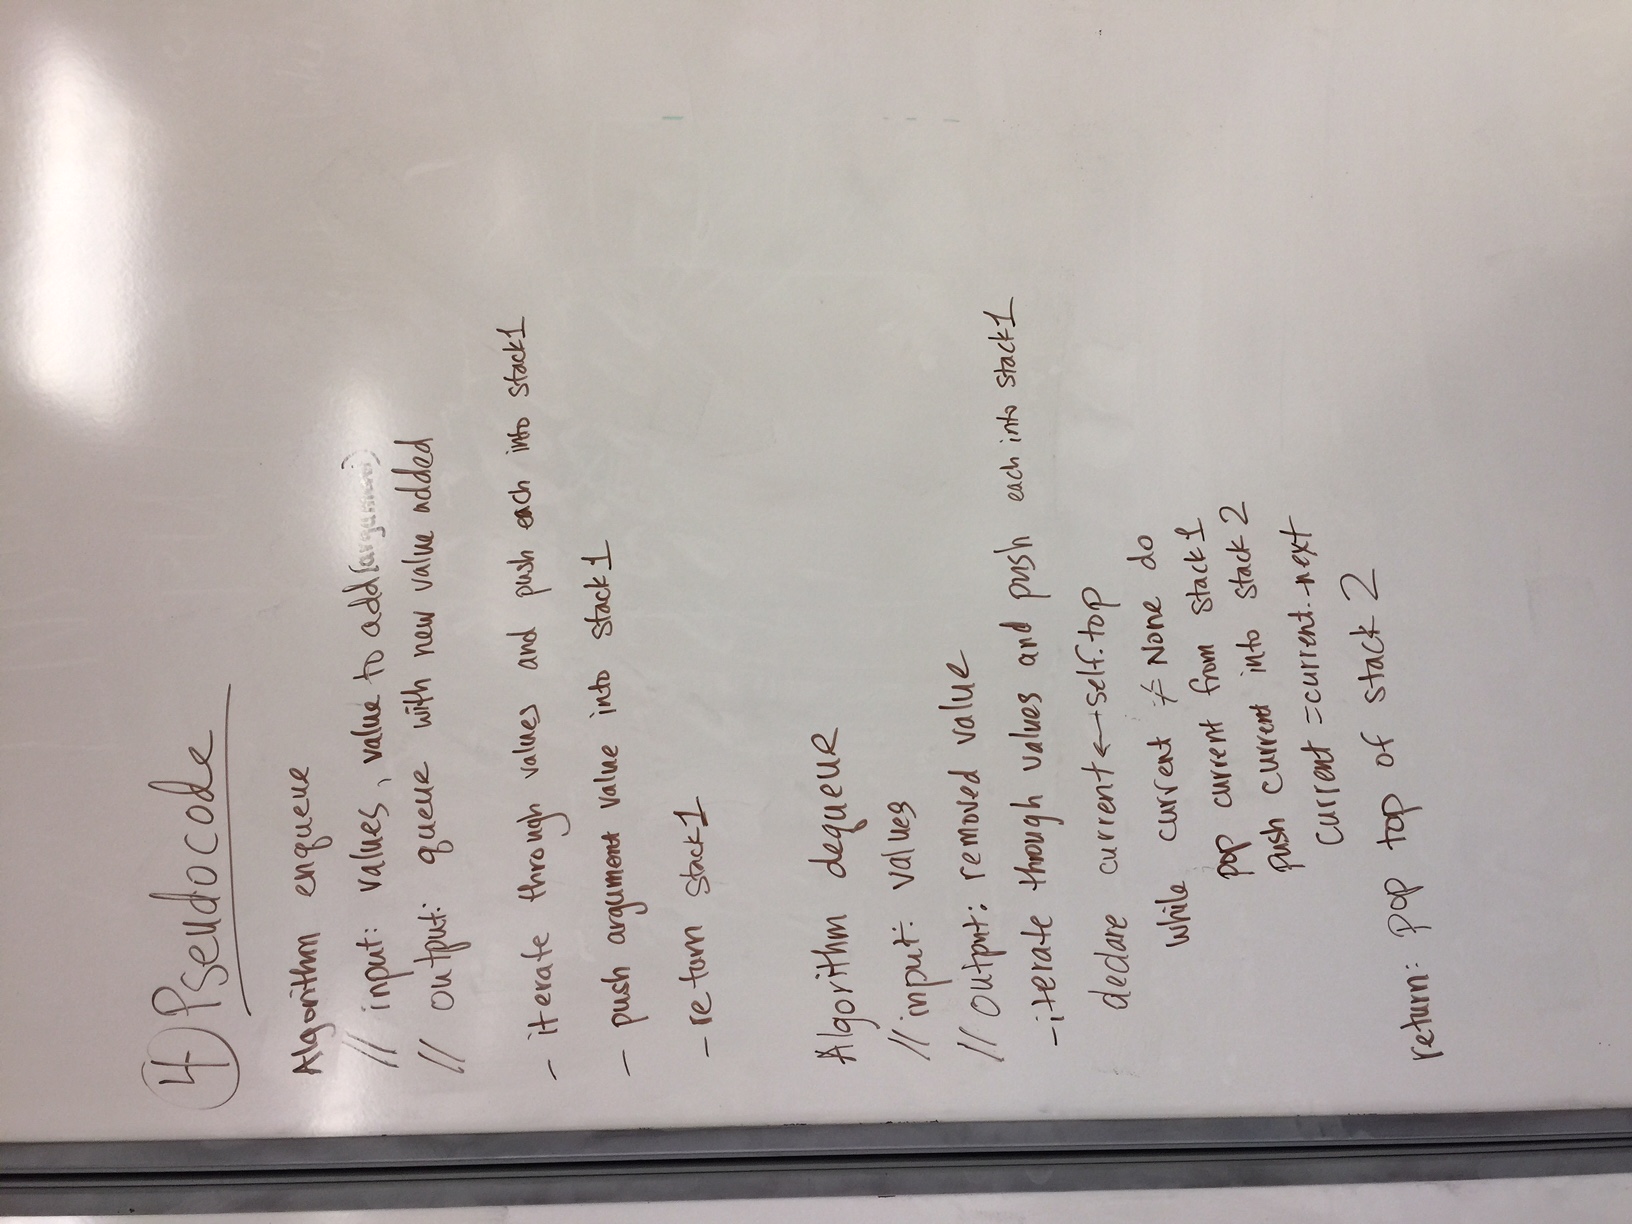 4 Pseudocode
Algorithm enqueue
// input: values, value to add (argument)
// output: queue with new value added
- iterate through values and push each into stack1
- push argument value into stack1
- return stack1
Algorithm dequeue
// input: values
// output: removed value
- iterate through values and push each into stack1
declare current ← self.top
while current ≠ None do
pop current from stack1
push current into stack 2
current = current._next
return: pop top of stack 2